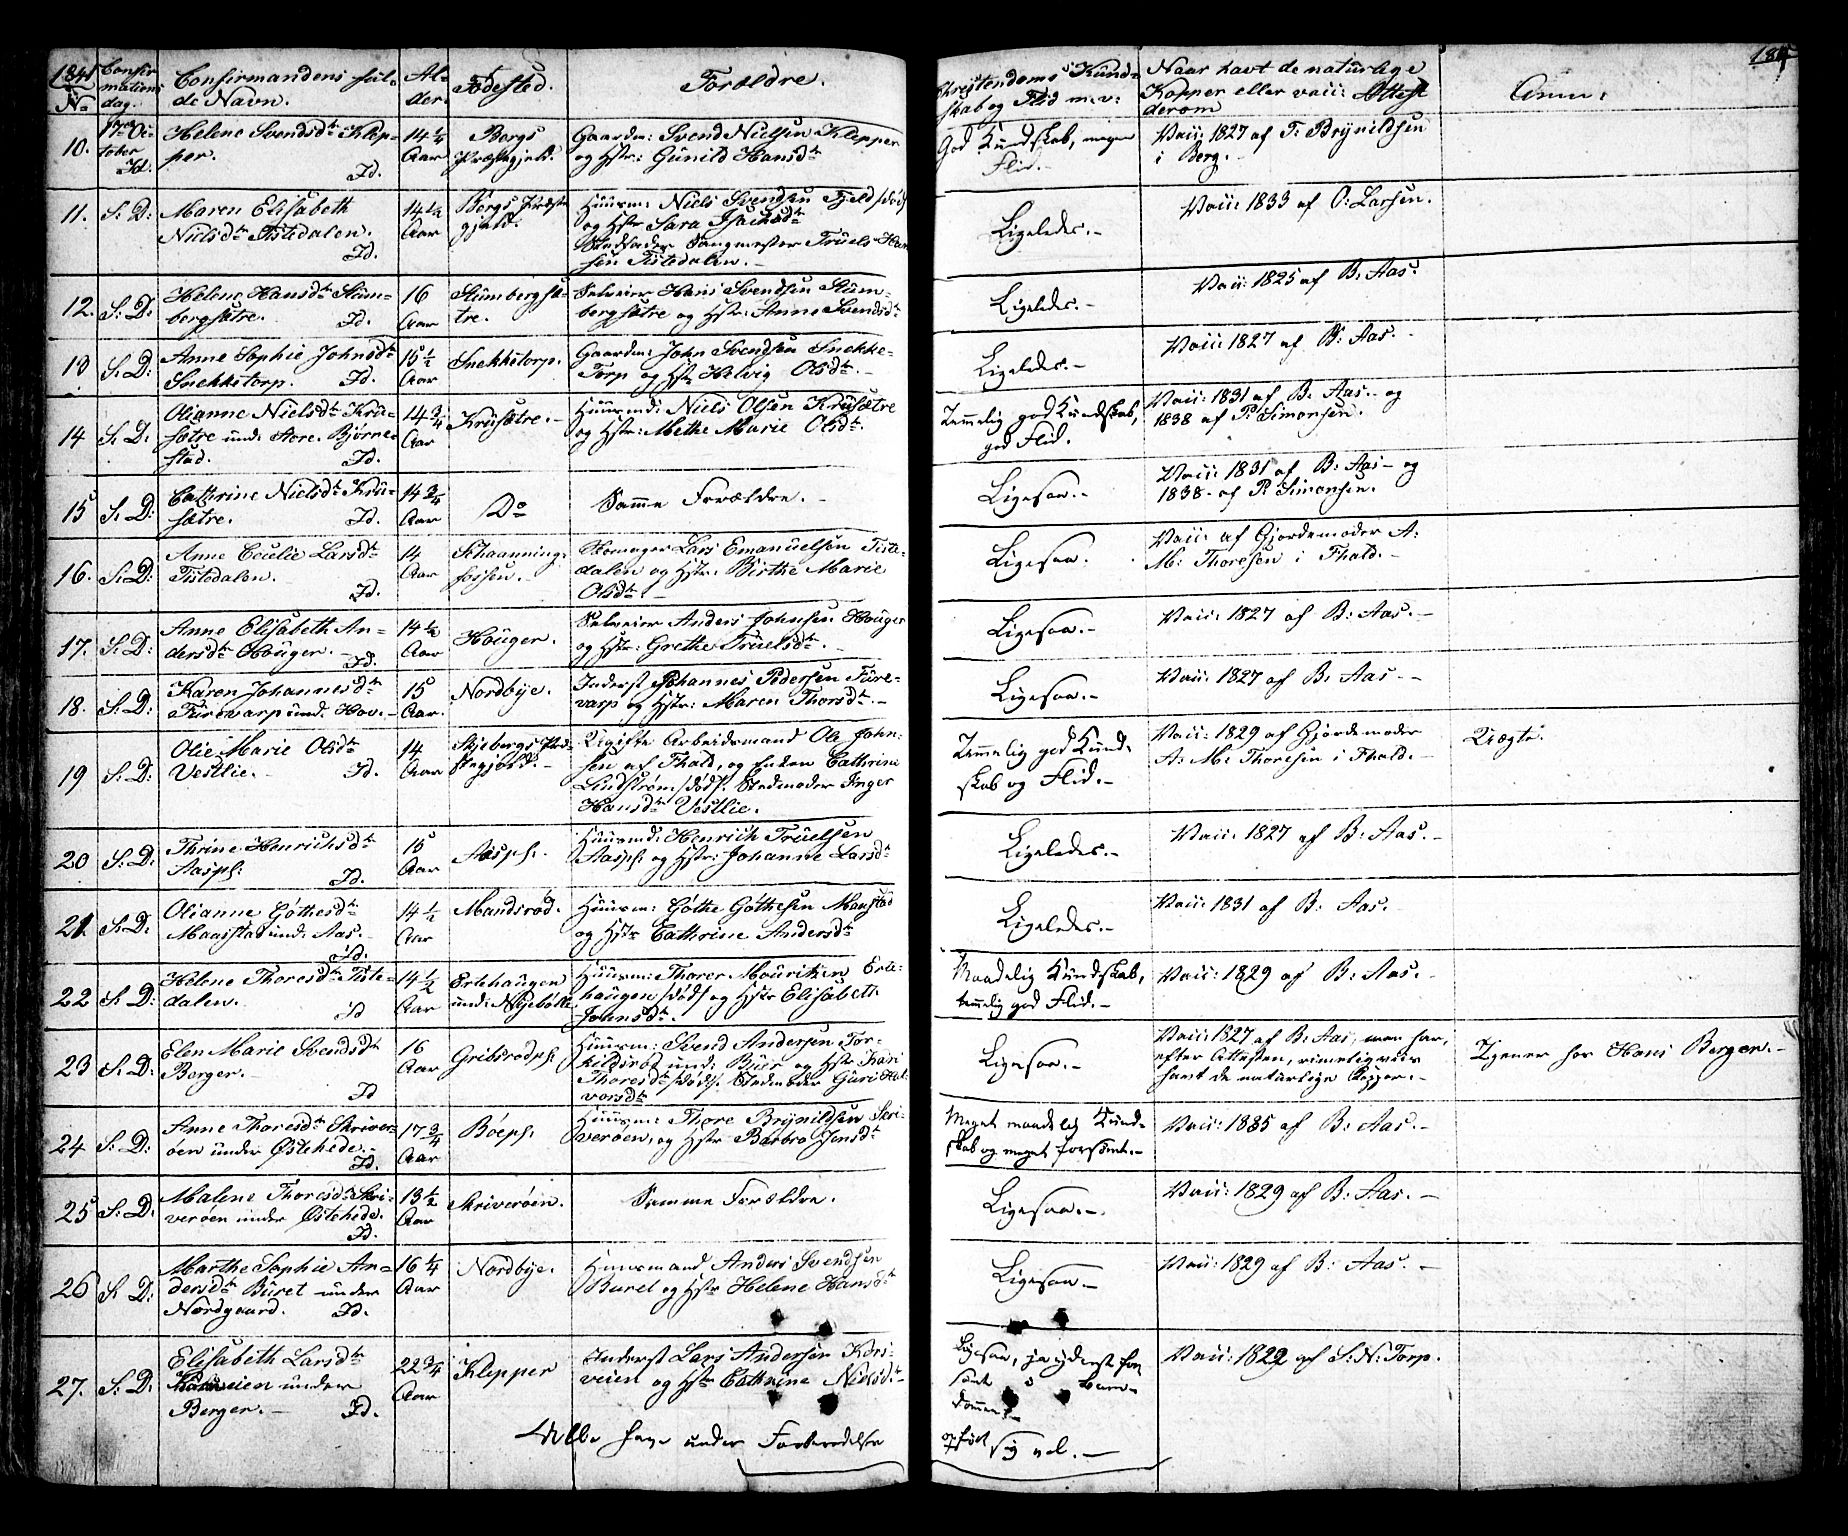 1841
No
Confir
mations
dag.
Confirmandens ful-
de Navn.
Al-
der.
Fødested.
Forældre.
Christendoms Kund-
skab og Flid m.v:
Naar havt de naturlige
Kopper eller vacc: Attest
derom
Anm:
10.
17de Oc-
tober
Id.
Helene Svendsdtr Klep-
per.
Id.
14 1/4
Aar
Bergs
Præstegjeld.
Gaardm: Svend Nielsen Klepper
og Hstr: Gunild Hansdtr
God Kundskab, megen
Flid.
Vacc: 1827 af T. Brynildsen
i Berg.-
11. S: D:
Maren Elisabeth
Nielsdtr Tistedalen.
Id.
14 1/2
Aar
Bergs Præste
gjeld.
Huusm: Niels Svendsen Fjeld /død/
og Hstr Sara Isachsdtr
Stedfader Saugmester Truels Han
sen Tistedalen.-
Ligeledes.-
Vacc: 1833 af O: Larsen.
12. S: D:
Helene Hansdtr Stum-
bergsætre.
Id.
16
Aar
Stumbergsæ-
tre.
Selveier Hans Svendsen Stum-
bergsætre og Hstr: Anne Svendsdtr
Ligeledes.-
Vacc: 1825 af B: Aas.
13 S. D:
Anne Sophie Johnsdtr
Snekketorp.
Id.
15 1/2
Aar
Snekketorp.
Gaardm: John Svendsen Snekke-
Torp og Hstr Helvig Olsdtr.-
Ligeledes.-
Vacc: 1827 af B: Aas.-
14 S. D:
Olianne Nielsdtr Kru-
sætre und: Store Bjørne-
stad.
Id.
14 3/4
Aar
Krusætre.-
Huusmd: Niels Olsen Krusætre
og Hstr: Methe Marie Olsdtr.
Temmelig god Kundskab,
god Flid.
Vacc: 1831 af B. Aas.- og
1838 af P. Simonsen.
15 S. D:
Cathrine Nielsdtr Kru-
sætre.
Id.
14 3/4
Aar
Do
Samme Forældre.-
Ligesaa.-
Vacc: 1831 af B: Aas- og
1838- af P. Simonsen.
16. S: D:
Anne Cecilie Larsdtr
Tistedalen.
Id.
14
Aar
Schaanning-
fossen.
Skomager Lars Emanuelsen Tiste-
dalen og Hstr: Birthe Marie
Olsdtr.-
Ligesaa.
Vacc: af Gjordemoder A:
M: Thoresen i Fhald.-
17. S: D:
Anne Elisabeth An-
dersdtr Houger.-
Id.
14 1/2
Aar
Houger.
Selveier Anders Johnsen Houger
og Hstr: Grethe Truelsdtr.-
Ligesaa.-
Vacc: 1827 af B: Aas.-
18. S: D:
Karen Johannesdtr
Furevarp und: Hov.-
15
Aar.
Nordbye.
Inderst Johannes Pedersen Fure-
varp og Hstr: Maren Thorsdtr.-
Ligesaa.-
Vacc: 1827 af B. Aas.--
19 S: D:
Olie Marie Olsdtr
Vestlie.-
Id.
14
Aar
Skjebergs Præ-
stegjeld.-
Ugifte Arbeidsmand Ole John-
sen af Fhald, og Enken Cathrine
Lindstrøm /død/. Stedmoder Inger
Hansdtr Vestlie.
Temmelig god Kund-
skab og Flid.-
Vacc: 1829 af Gjordemoder
A: M: Thoresen i Fhald.-
Uægte.
20 S: D:
Thrine Henrichsdtr
Aaspl:
Id.
15
Aar
Aaspl:
Huusmd: Henrich Truelsen
Aaspl: og Hstr: Johanne Larsdtr
Ligeledes.-
Vacc: 1827 af B: Aas.-
21. S: D:
Olianne Gøthesdtr
Maastad und: Aas.-
Id.
14 1/2
Aar
Mandsrød.
Huusm: Gøthe Gøthesen Maastad
og Hstr Cathrine Andersdtr
Ligeledes.-
Vacc: 1831 af B: Aas.-
22 S: D:
Helene Thoresdtr Tiste-
dalen.
Id
14 1/2
Aar
Ertehaugen
und: Nyebølle
Huusm: Thorer Mouritzen Erte-
haugen /død/ og Hstr Elisabeth
Johnsdtr.
Maadelig Kundskab,
temmelig god Flid.-
Vacc: 1829 af B: Aas.-
23 S: D:
Elen Marie Svendsdtr
Berger.-
Id
16
Aar
Gribsrødpl:
Huusm: Svend Andersen Tor-
kildsrød und: Buer og Hstr Kari
Thoresdtr /død/. Stedmoder Guri Hal-
vorsdtr
Ligesaa.-
Vacc: 1827 af B: Aas, men har,
efter Attesten, rimeligviis
havt de naturlige Kopper.-
Tjener hos Hans Berger.-
24 S: D:
Anne Thoresdtr Skriver-
øen under Østehede.-
Id.
17 3/4
Aar
Bøepl:
Huusm: Thore Brynildsen Skri-
verøen, og Hstr Barbro Jensdtr
Meget maadelig Kund-
skab og meget forsømt.-
Vacc: 1835 af B: Aas.-
25 S: D:
Malene Thoresdtr Skri-
verøen under Østehede.
Id.
13 1/2
Aar
Skriverøen.
Samme Forældre.
Ligesaa.-
Vacc: 1829 af B: Aas.-
26 S: D:
Marthe Sophie An-
dersdtr Buret under
Nordgaard.
Id.
16 1/4
Aar
Nordbye.
Huusmand Anders Svendsen
Buret og Hstr Helene Hansdtr
Ligesaa-
Vacc: 1829 af B: Aas.-
27. S: D:
Elisabeth Larsdtr
under
Berger.-
Id.
22 3/4
Aar
Klepper
Inderst Lars Andersen Kors-
veien og Hstr Cathrine Nielsdtr-
Ligesaa, ja yderst for
sømt i Barn-
dommen
Vacc: 1822 af S: N: Torp.
Alle have under Forberedelse
opført sig vel.-